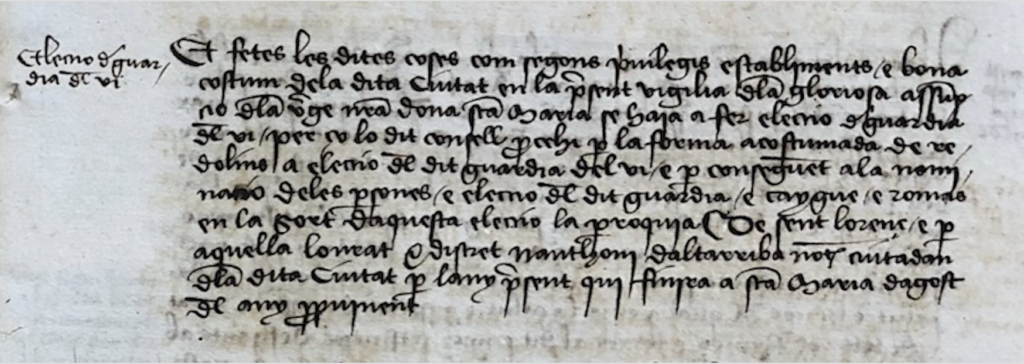 Eleccio de guar-
dia dl vi
Et fetes les dites coses com segons priuilegis establiments e bona
costum dela dita Ciutat en la psent vigilia dla gloriosa assup
cio dla vge nra dona sta Maria se haia a fer eleccio de guardia
dl vi / per ço lo dit consell procehi p la forma acostumada de re-
dolins / a eleccio dl dit guardia del vi / e p conseguent ala nomi-
nacio deles psones / e eleccio dl dit guardia / e caygue / e romas
en la sort daquesta eleccio la proquia De sent lorenç / e p
aquella lonrat & discret nanthoni daltarriba not ciutadan
dla dita Ciutat p lany psent qui finira a sta Maria dagost
dl any ppuinent